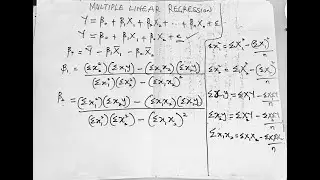 MULTIPLE LINEAR REGRESSION
Y = β₀ + β₁X₁ + β₂X₂ + ··· + βₙXₙ + ε
Y = β₀ + β₁X₁ + β₂X₂ + e
β₀ = Ȳ - β₁X̄₁ - β₂X̄₂
β₁ = (Σx₂²)(Σx₁y) - (Σx₁x₂)(Σx₂y) / (Σx₁²)(Σx₂²) - (Σx₁x₂)²
β₂ = (Σx₁²)(Σx₂y) - (Σx₁x₂)(Σx₁y) / (Σx₁²)(Σx₂²) - (Σx₁x₂)²
Σx₁² = ΣX₁² - (ΣX₁)²/n
Σx₂² = ΣX₂² - (ΣX₂)²/n
Σx₁y = ΣX₁Y - ΣX₁ΣY/n
Σx₂y = ΣX₂Y - ΣX₂ΣY/n
Σx₁x₂ = ΣX₁X₂ - ΣX₁ΣX₂/n